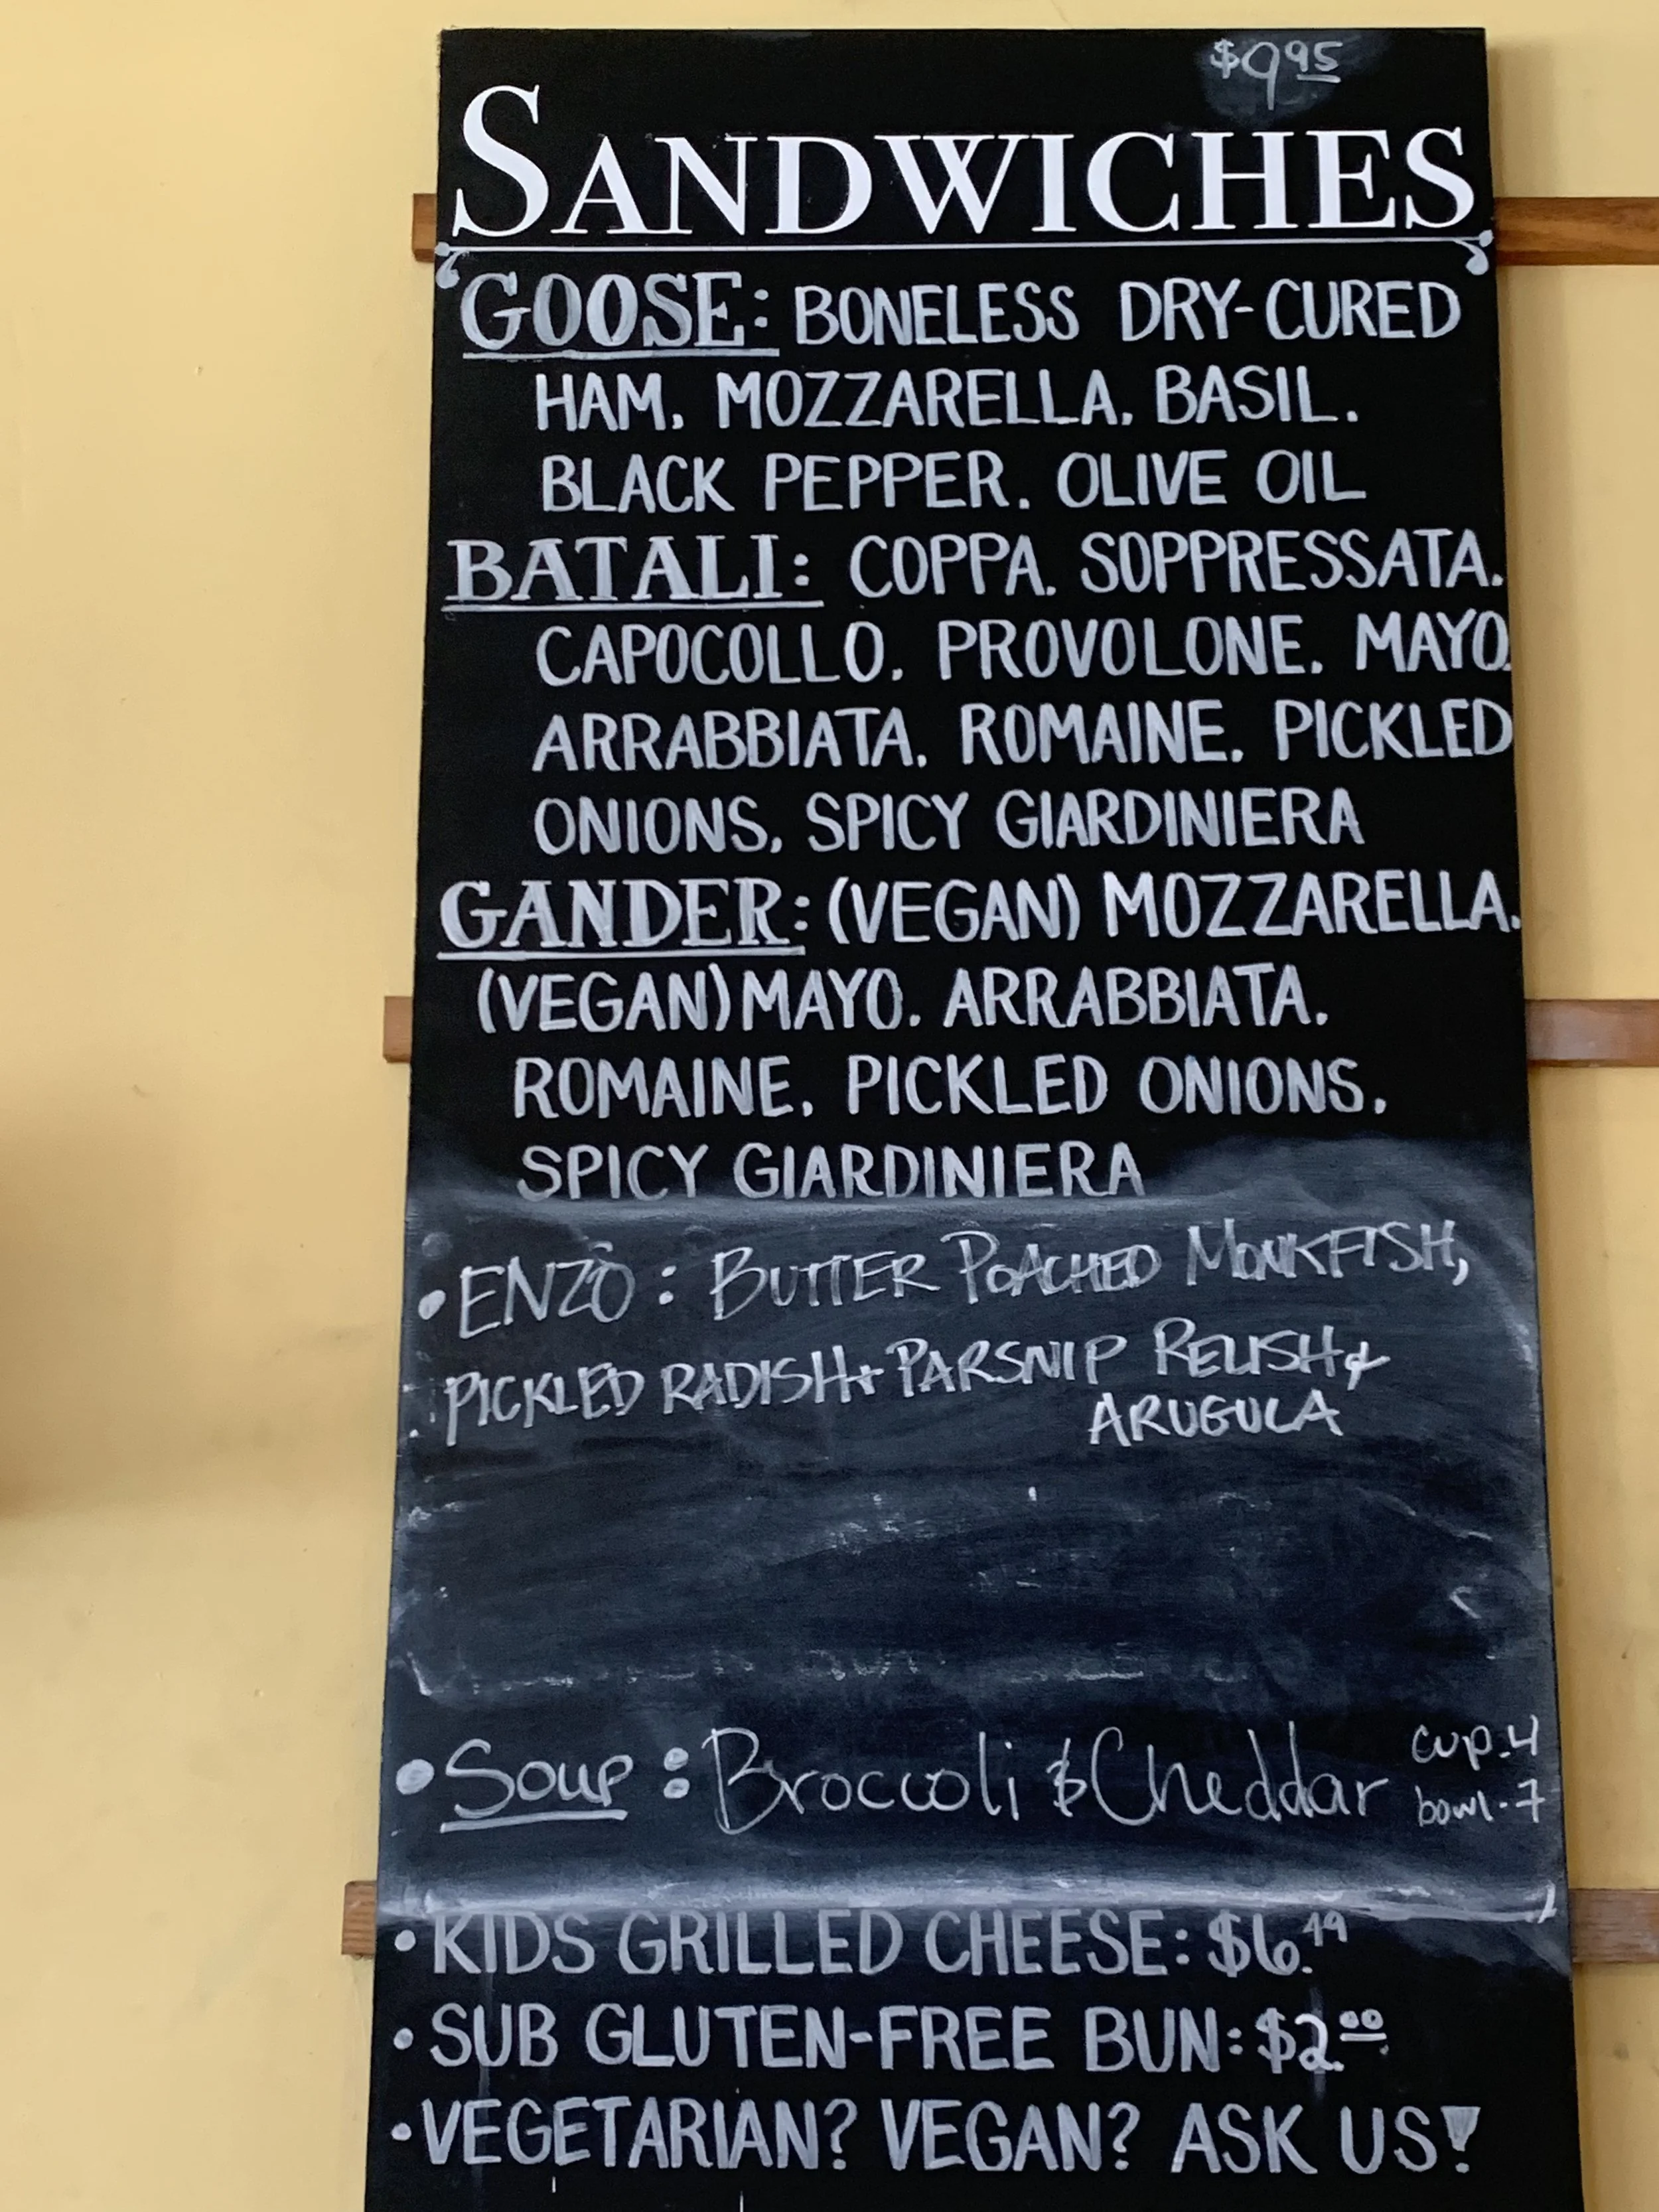 $9.95
SANDWICHES
GOOSE: BONELESS DRY-CURED
HAM. MOZZARELLA. BASIL.
BLACK PEPPER. OLIVE OIL
BATALI: COPPA. SOPPRESSATA.
CAPOCOLLO. PROVOLONE. MAYO.
ARRABBIATA. ROMAINE. PICKLED
ONIONS. SPICY GIARDINIERA
GANDER: (VEGAN) MOZZARELLA.
(VEGAN) MAYO. ARRABBIATA.
ROMAINE. PICKLED ONIONS.
SPICY GIARDINIERA
• ENZO: BUTTER POACHED MONKFISH,
PICKLED RADISH + PARSNIP RELISH &
ARUGULA
• Soup: Broccoli & Cheddar cup-4
bowl-7
• KIDS GRILLED CHEESE: $6.49
• SUB GLUTEN-FREE BUN: $2.00
• VEGETARIAN? VEGAN? ASK US!